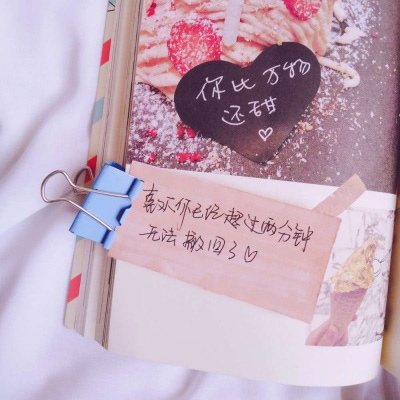 你比万物
还甜♡
喜欢你已经超过两分钟
无法撤回了♡